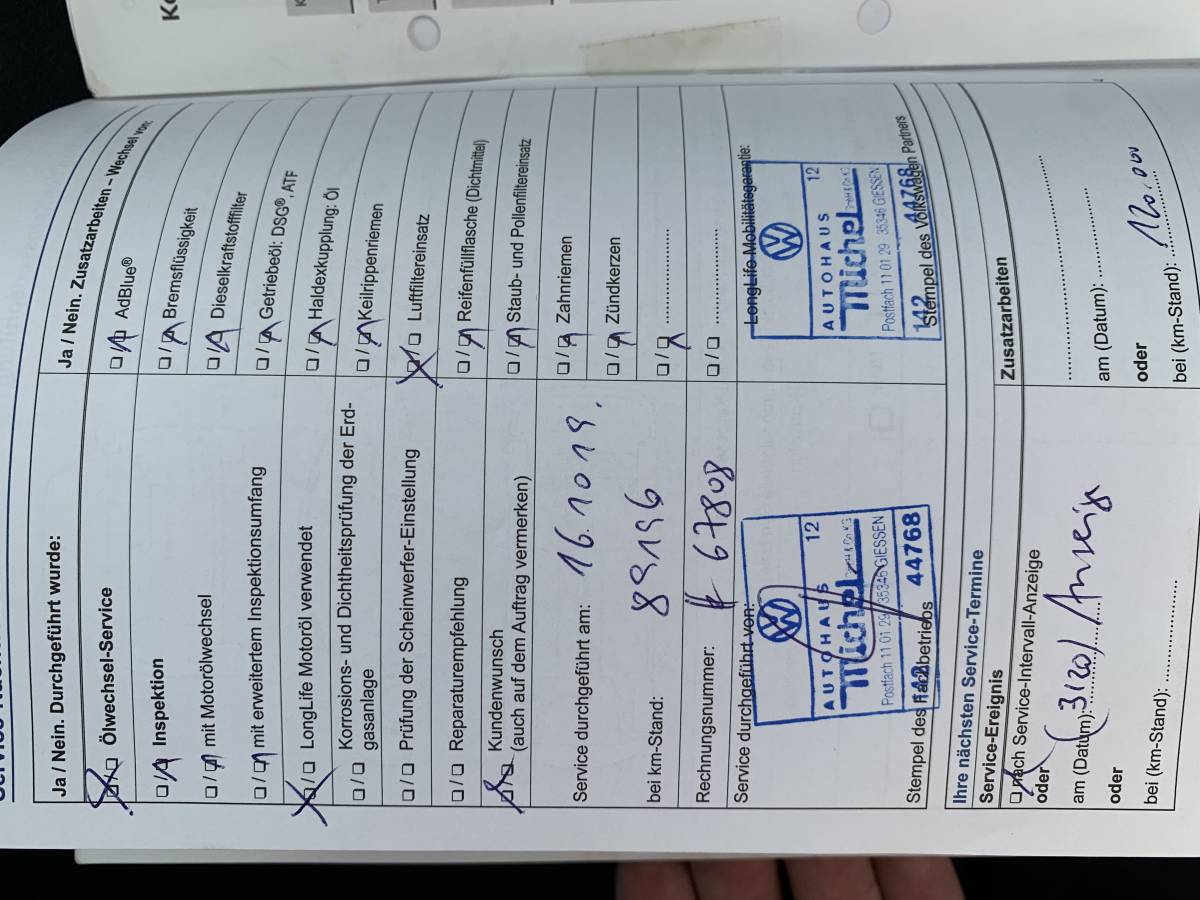 Ja / Nein. Durchgeführt wurde:
☐/☐ Ölwechsel-Service
☐/☐ Inspektion
☐/☐ mit Motorölwechsel
☐/☐ mit erweitertem Inspektionsumfang
☐/☐ LongLife Motoröl verwendet
☐/☐ Korrosions- und Dichtheitsprüfung der Erd-
gasanlage
☐/☐ Prüfung der Scheinwerfer-Einstellung
☐/☐ Reparaturempfehlung
☐/☐ Kundenwunsch
(auch auf dem Auftrag vermerken)
Service durchgeführt am: 16.10 19.
bei km-Stand: 89196
Rechnungsnummer: 67808
Service durchgeführt von:
AUTOHAUS 12
Michel GmbH & Co KG
Postfach 11 01 29 · 35346 GIESSEN
142 44768
Stempel des Fachbetriebs
Ja / Nein. Zusatzarbeiten – Wechsel von:
☐/☐ AdBlue®
☐/☐ Bremsflüssigkeit
☐/☐ Dieselkraftstofffilter
☐/☐ Getriebeöl: DSG®, ATF
☐/☐ Haldexkupplung: Öl
☐/☐ Keilrippenriemen
☐/☐ Luftfiltereinsatz
☐/☐ Reifenfüllflasche (Dichtmittel)
☐/☐ Staub- und Pollenfiltereinsatz
☐/☐ Zahnriemen
☐/☐ Zündkerzen
☐/☐ ....................
☐/☐ ....................
LongLife Mobilitätsgarantie:
AUTOHAUS 12
Michel GmbH & Co KG
Postfach 11 01 29 · 35346 GIESSEN
142 44768
Stempel des Volkswagen Partners
Ihre nächsten Service-Termine
Service-Ereignis
☐ nach Service-Intervall-Anzeige
oder
am (Datum): (3120) Anzeige
oder
bei (km-Stand): ....................
Zusatzarbeiten
....................
am (Datum): ....................
oder
bei (km-Stand): 120.000